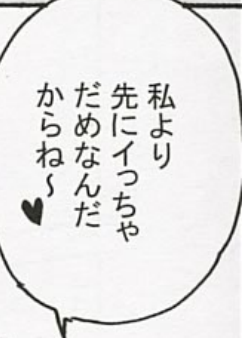 私より
先にイっちゃ
だめなんだ
からね～♥